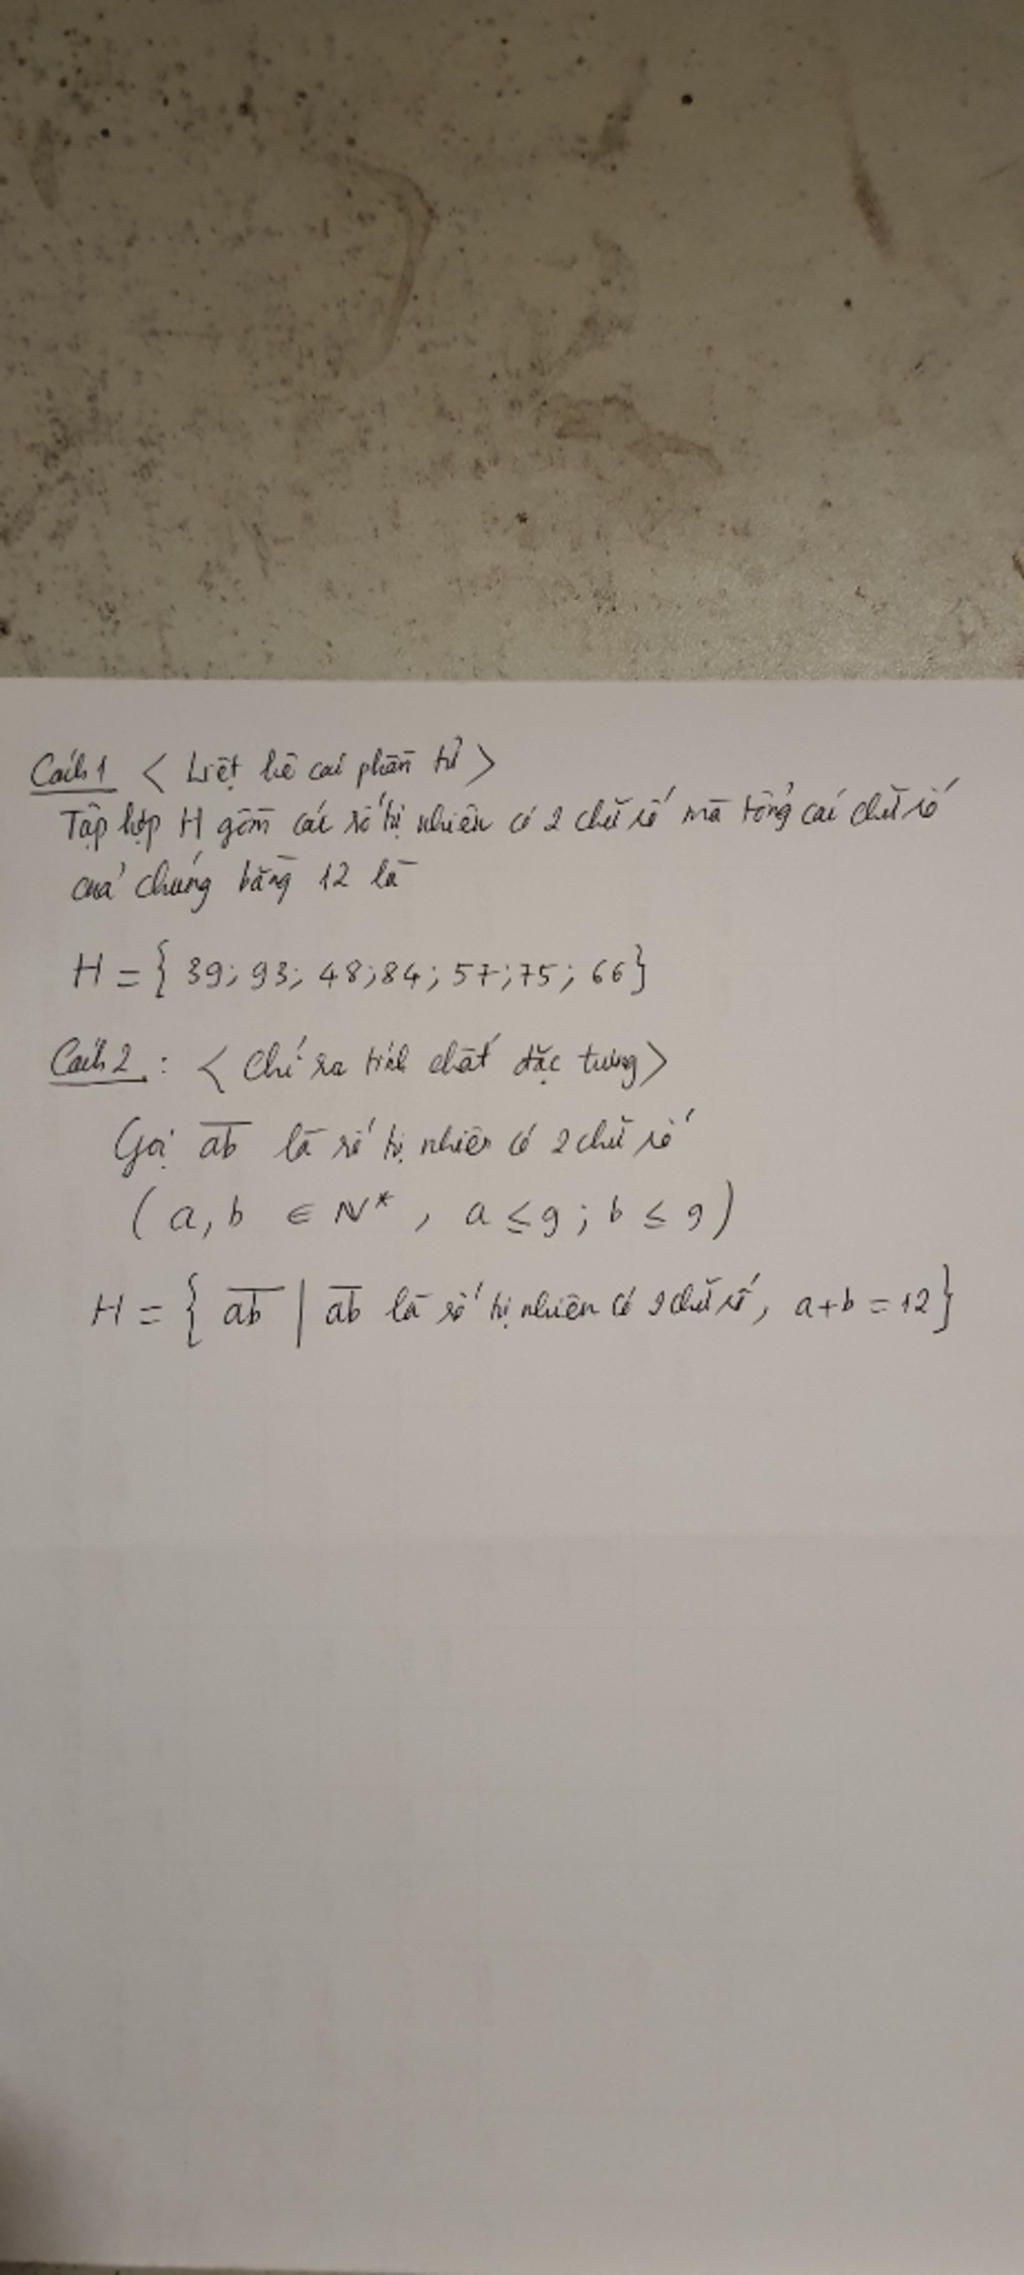 Cách 1 < Liệt kê các phần tử >
Tập hợp H gồm các số tự nhiên có 2 chữ số mà tổng các chữ số
của chúng bằng 12 là
H = { 39; 93; 48; 84; 57; 75; 66 }
Cách 2 : < Chỉ ra tính chất đặc trưng >
Gọi \overline{ab} là số tự nhiên có 2 chữ số
( a, b ∈ N* , a ≤ 9 ; b ≤ 9 )
H = { \overline{ab} | \overline{ab} là số tự nhiên có 2 chữ số, a + b = 12 }